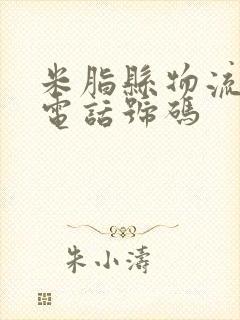 米脂縣物流
電話號碼
朱小濤